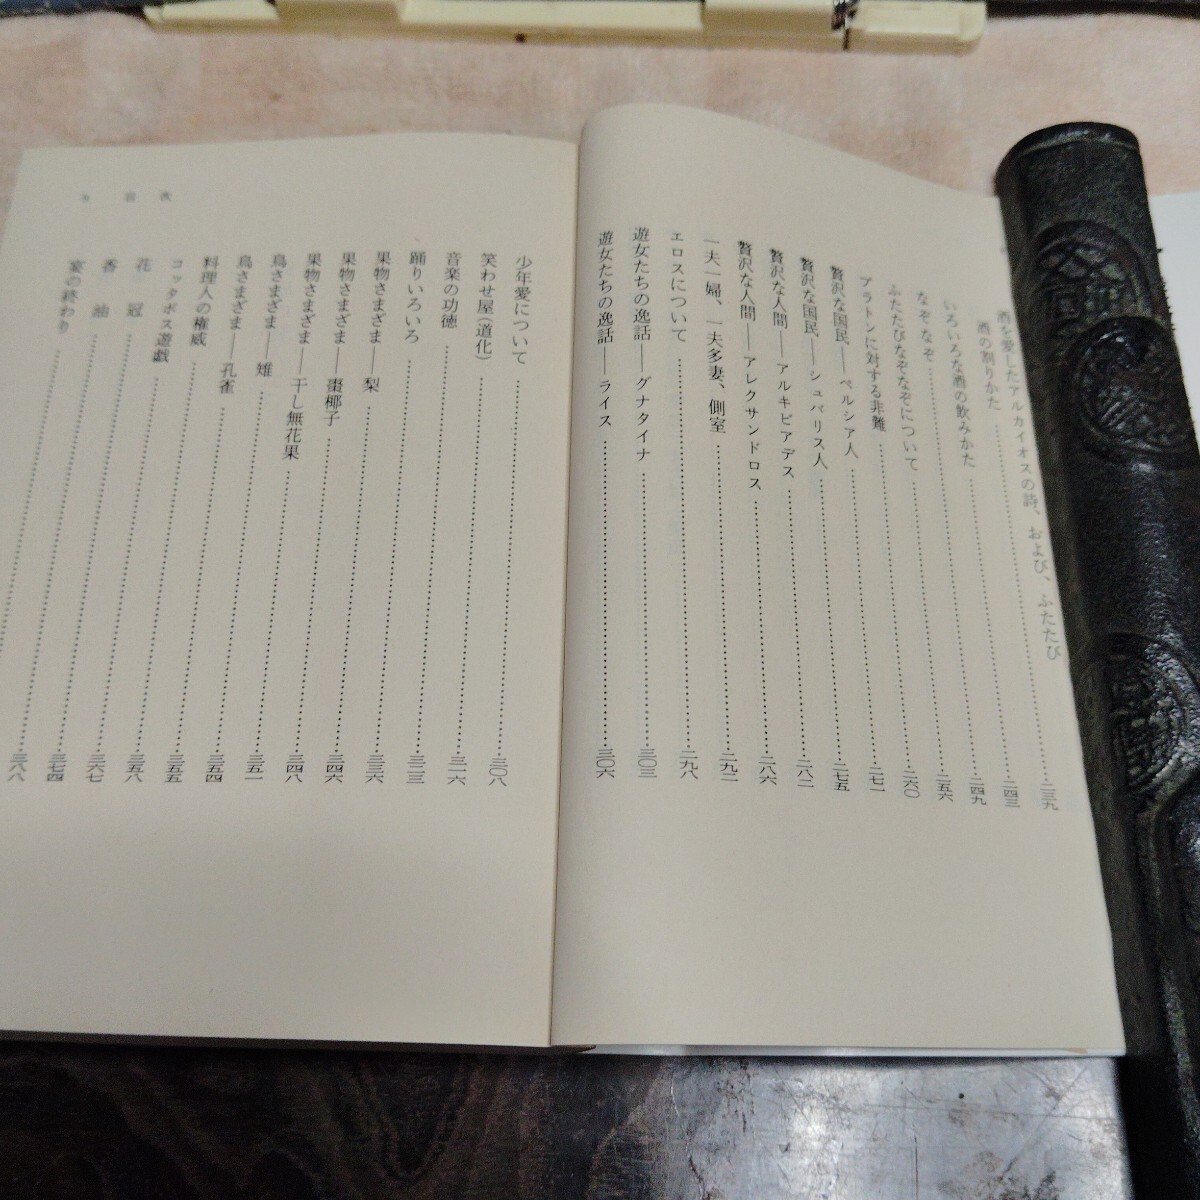 酒を愛したアルカイオスの詩、および、ふたたび
酒の割りかた……二三九
いろいろな酒の飲みかた……二四三
なぞなぞ……二四九
ふたたびなぞなぞについて……二五六
プラトンに対する非難……二六〇
贅沢な国民——ペルシア人……二七一
贅沢な国民——シュバリス人……二七五
贅沢な人間——アルキビアデス……二八二
贅沢な人間——アレクサンドロス……二八六
一夫一婦、一夫多妻、側室……二九二
エロスについて……二九八
遊女たちの逸話——グナタイナ……三〇三
遊女たちの逸話——ライス……三〇六
目次
少年愛について……三〇八
笑わせ屋(道化)……三一六
音楽の功徳……三二三
踊りいろいろ……三三六
果物さまざま——梨……三四六
果物さまざま——棗椰子……三四八
果物さまざま——干し無花果……三五一
鳥さまざま——雉……三五四
鳥さまざま——孔雀……三五五
料理人の権威……三五八
コッタボス遊戯……三六七
花冠……三七四
香油……三八八
宴の終わり